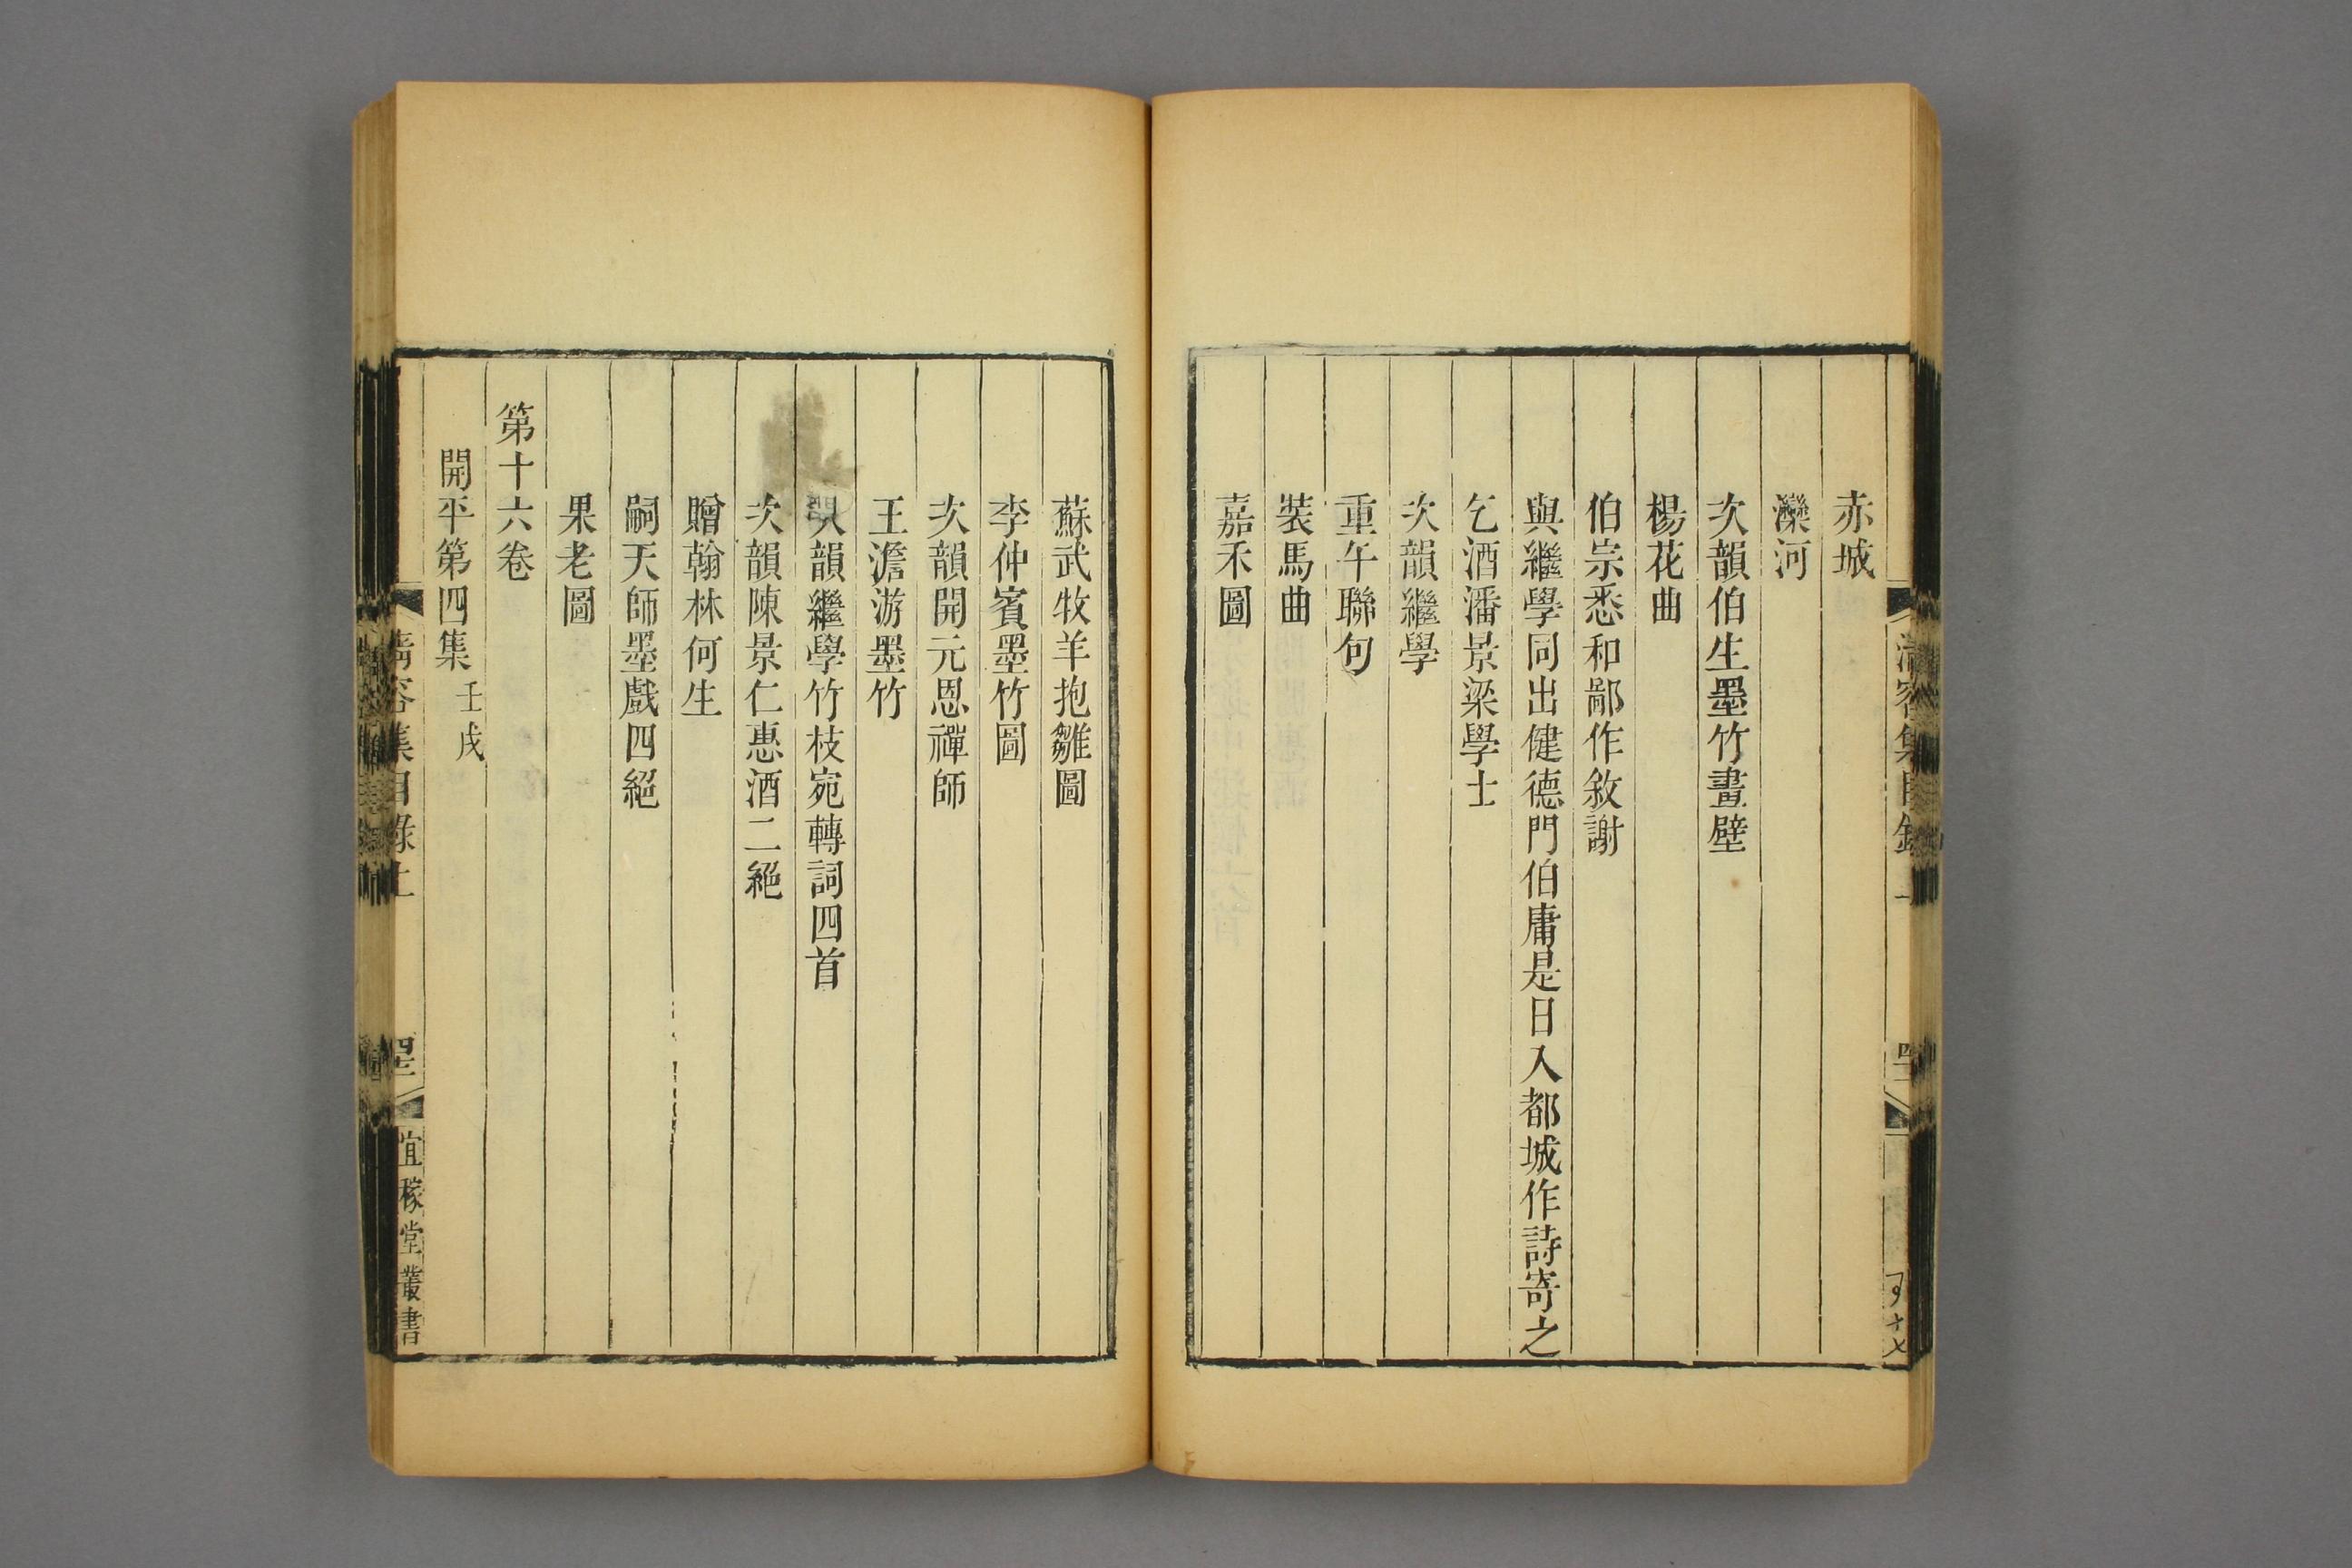 赤城
灤河
次韻伯生墨竹畫壁
楊花曲
伯宗悉和鄙作敘謝
與繼學同出健德門伯庸是日入都城作詩寄之
乞酒潘景梁學士
次韻繼學
重午聯句
裝馬曲
嘉禾圖
蘇武牧羊抱雛圖
李仲賓墨竹圖
次韻開元恩禪師
王澹游墨竹
韻繼學竹枝宛轉詞四首
次韻陳景仁惠酒二絕
贈翰林何生
嗣天師墨戲四絕
果老圖
第十六卷
開平第四集 壬戌
清容集目錄上
宜稼堂叢書